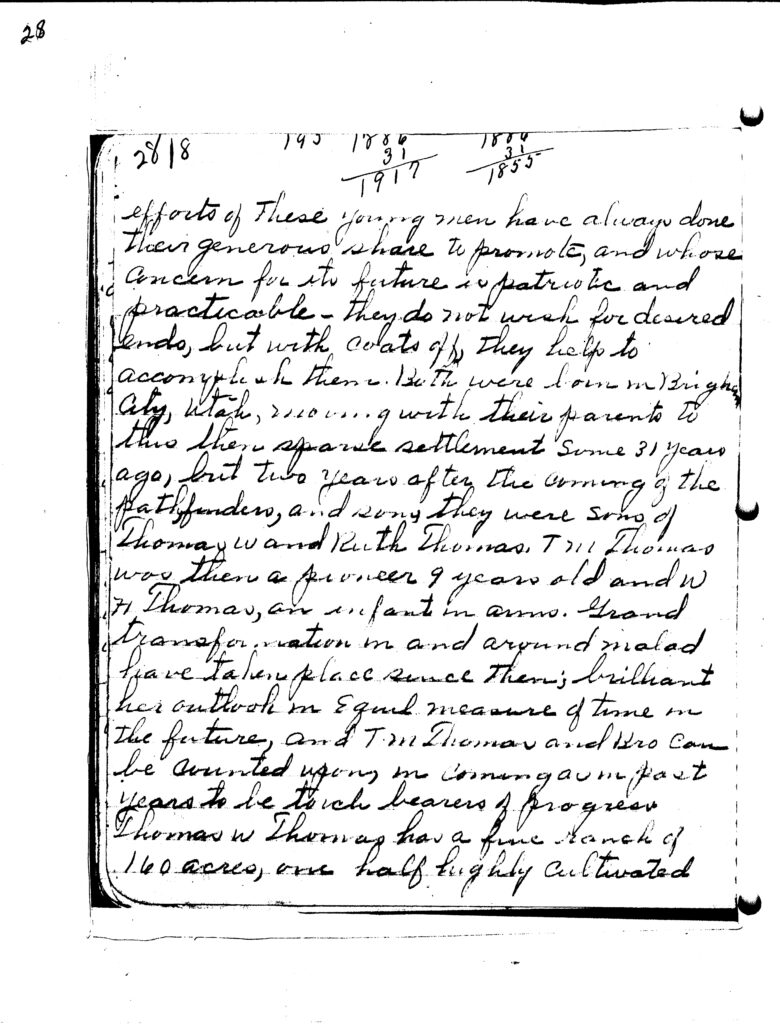 28
28/8 195 1886 1886
31 31
1917 1855
efforts of these young men have always done
their generous share to promote, and whose
concern for its future is patriotic and
practicable - they do not wish for desired
ends, but with coats off, they help to
accomplish them. Both were born in Brigham
City, Utah, moving with their parents to
this then sparse settlement some 31 years
ago, but two years after the coming of the
pathfinders, and sons, they were sons of
Thomas W and Ruth Thomas. T M Thomas
was then a pioneer 9 years old and W
H Thomas, an infant in arms. Grand
transformation in and around malad
have taken place since then; brilliant
her outlook in Equil measure of time in
the future, and T M Thomas and Bro can
be counted upon, in coming as in past
years to be torch bearers of progress
Thomas W Thomas has a fine ranch of
160 acres, one half highly cultivated